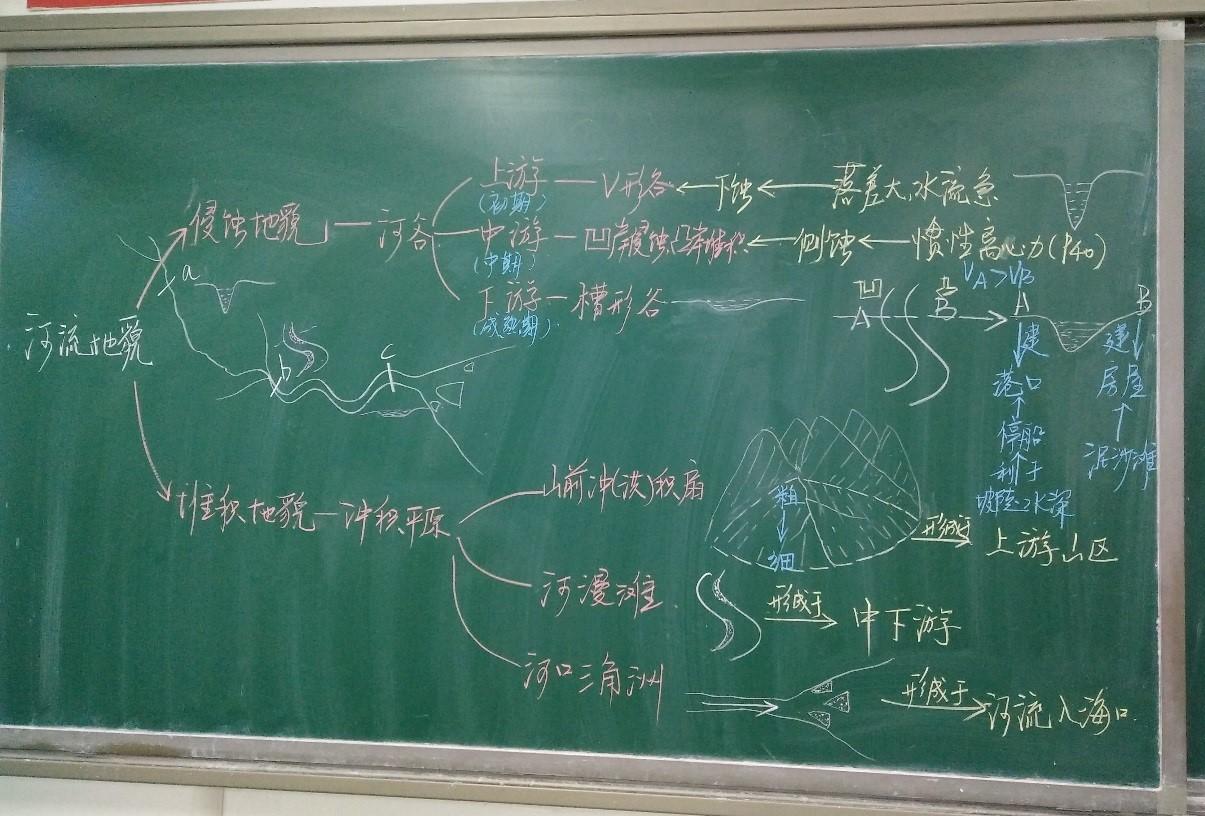 河流地貌
侵蚀地貌 河谷
上游 V形谷 下蚀 落差大,水流急
(初期)
中游 凹岸侵蚀凸岸堆积 侧蚀 惯性离心力(P40)
(中期)
下游 槽形谷
(成熟期)
a
b
c
凹 凸
A B
VA>VB
A B
建 建
港口 房屋
停船 泥沙滩
利于
坡陡水深
堆积地貌 冲积平原
山前冲(洪)积扇 粗 细 形成于 上游山区
河漫滩 形成于 中下游
河口三角洲 形成于 河流入海口